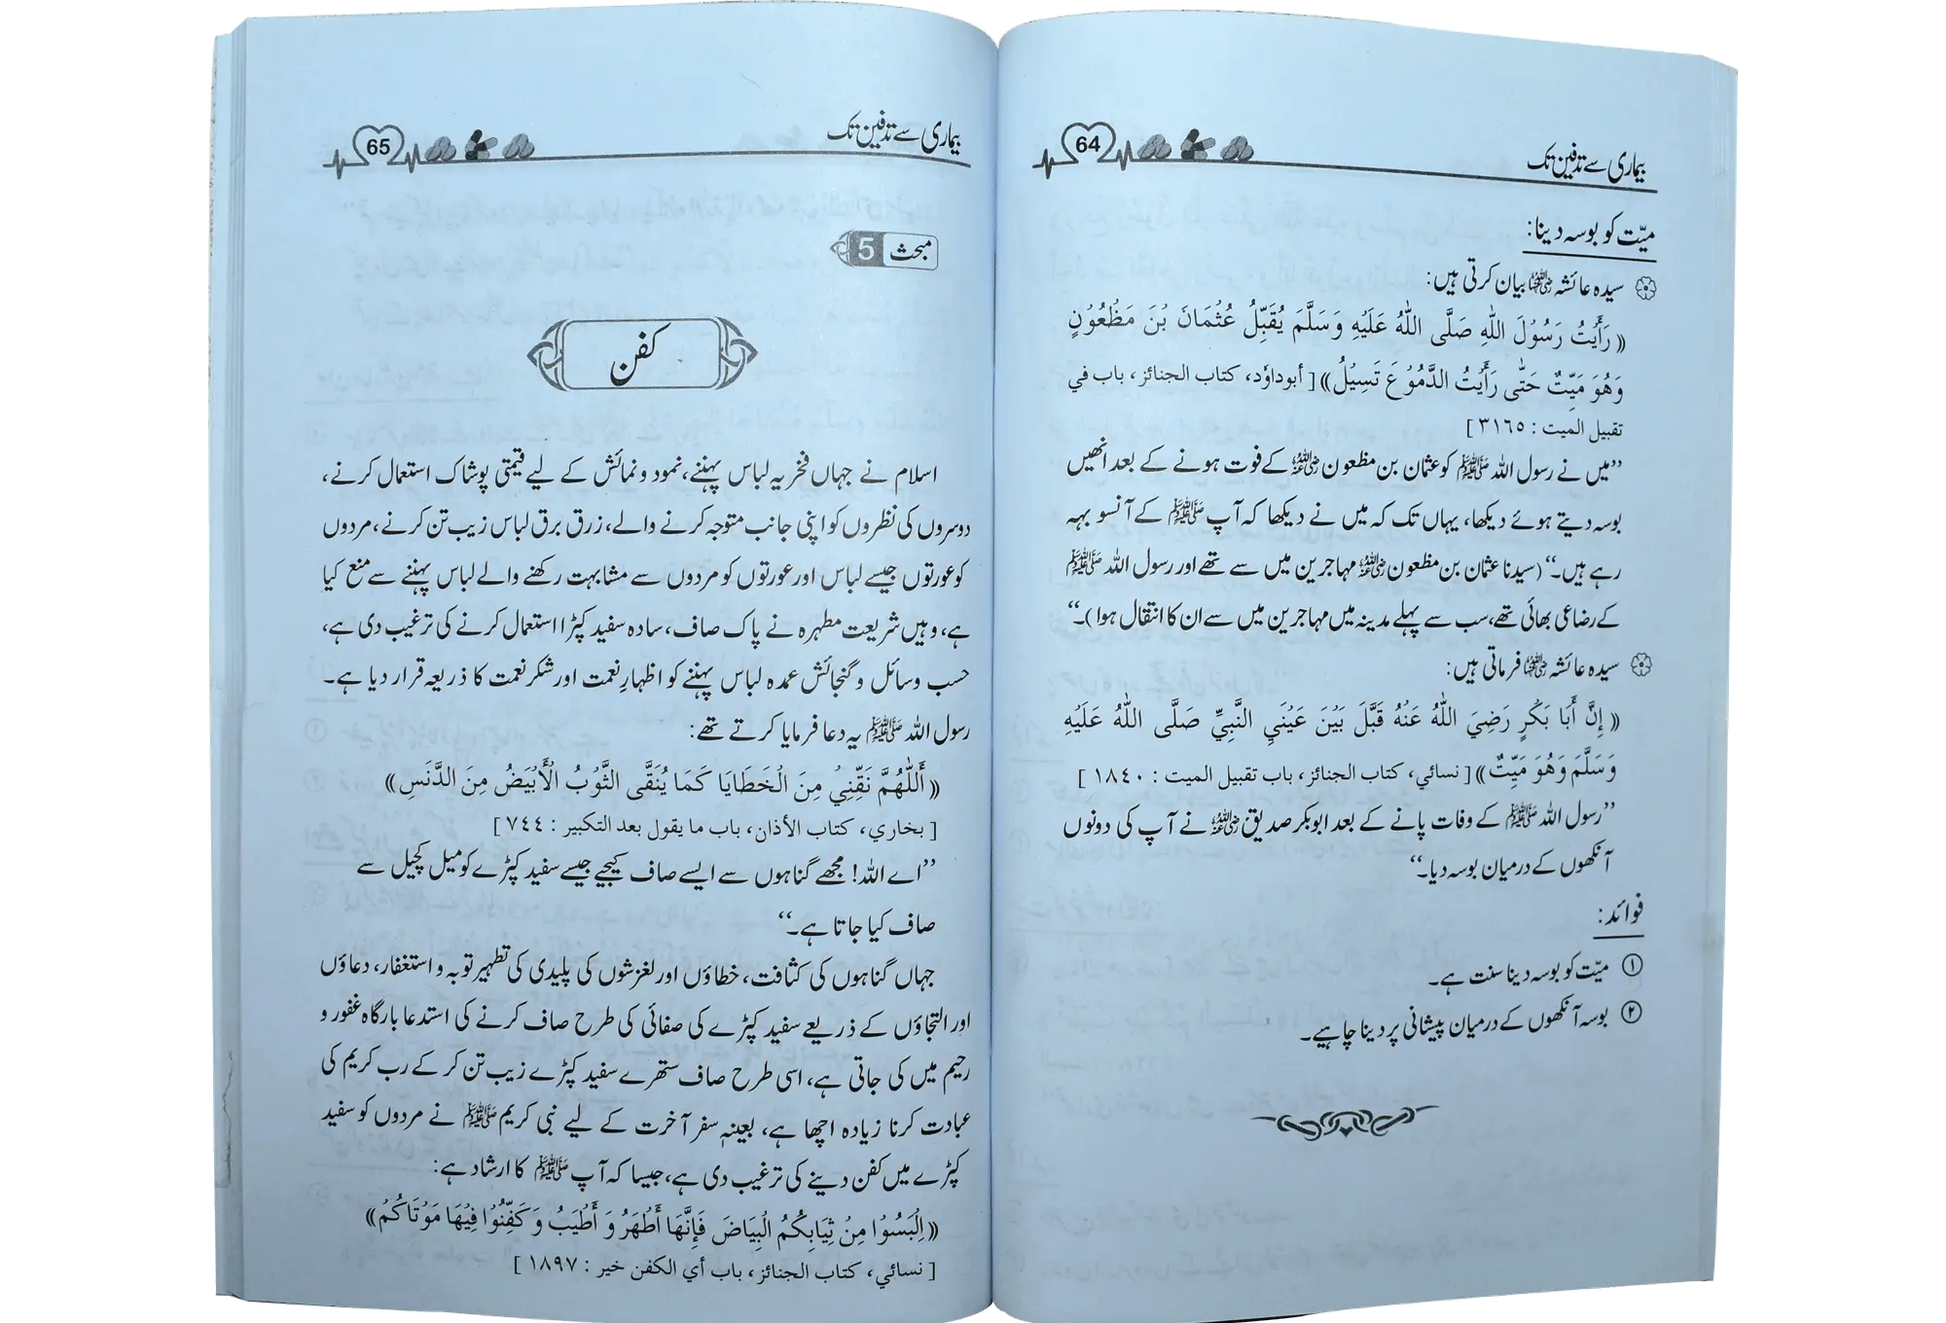 بیماری سے تدفین تک
64
میّت کو بوسہ دینا:
سیدہ عائشہ رضی اللہ عنہا بیان کرتی ہیں:
(( رَأَيْتُ رَسُوْلَ اللهِ صَلَّى اللهُ عَلَيْهِ وَسَلَّمَ يُقَبِّلُ عُثْمَانَ بْنَ مَظْعُوْنٍ
وَهُوَ مَيِّتٌ حَتّٰى رَأَيْتُ الدُّمُوْعَ تَسِيْلُ )) [ أبوداوٗد، كتاب الجنائز، باب في
تقبيل الميت : ٣١٦٥ ]
’’میں نے رسول اللہ ﷺ کو عثمان بن مظعون رضی اللہ عنہ کے فوت ہونے کے بعد انھیں
بوسہ دیتے ہوئے دیکھا، یہاں تک کہ میں نے دیکھا کہ آپ ﷺ کے آنسو بہہ
رہے ہیں۔‘‘ (سیدنا عثمان بن مظعون رضی اللہ عنہ مہاجرین میں سے تھے اور رسول اللہ ﷺ
کے رضاعی بھائی تھے، سب سے پہلے مدینہ میں مہاجرین میں سے ان کا انتقال ہوا)۔‘‘
سیدہ عائشہ رضی اللہ عنہا فرماتی ہیں:
(( إِنَّ أَبَا بَكْرٍ رَضِيَ اللهُ عَنْهُ قَبَّلَ بَيْنَ عَيْنَيِ النَّبِيِّ صَلَّى اللهُ عَلَيْهِ
وَسَلَّمَ وَهُوَ مَيِّتٌ )) [ نسائي، كتاب الجنائز، باب تقبيل الميت : ١٨٤٠ ]
’’رسول اللہ ﷺ کے وفات پانے کے بعد ابوبکر صدیق رضی اللہ عنہ نے آپ کی دونوں
آنکھوں کے درمیان بوسہ دیا۔‘‘
فوائد:
① میّت کو بوسہ دینا سنت ہے۔
② بوسہ آنکھوں کے درمیان پیشانی پر دینا چاہیے۔
بیماری سے تدفین تک
65
مبحث 5
کفن
اسلام نے جہاں فخریہ لباس پہننے، نمود و نمائش کے لیے قیمتی پوشاک استعمال کرنے،
دوسروں کی نظروں کو اپنی جانب متوجہ کرنے والے، زرق برق لباس زیب تن کرنے، مردوں
کو عورتوں جیسے لباس اور عورتوں کو مردوں سے مشابہت رکھنے والے لباس پہننے سے منع کیا
ہے، وہیں شریعت مطہرہ نے پاک صاف، سادہ سفید کپڑا استعمال کرنے کی ترغیب دی ہے،
حسب وسائل و گنجائش عمدہ لباس پہننے کو اظہارِ نعمت اور شکر نعمت کا ذریعہ قرار دیا ہے۔
رسول اللہ ﷺ یہ دعا فرمایا کرتے تھے:
(( أَللّٰهُمَّ نَقِّنِيْ مِنَ الْخَطَايَا كَمَا يُنَقَّى الثَّوْبُ الْأَبْيَضُ مِنَ الدَّنَسِ ))
[ بخاري، كتاب الأذان، باب ما يقول بعد التكبير : ٧٤٤ ]
’’اے اللہ! مجھے گناہوں سے ایسے صاف کیجیے جیسے سفید کپڑے کو میل کچیل سے
صاف کیا جاتا ہے۔‘‘
جہاں گناہوں کی کثافت، خطاؤں اور لغزشوں کی پلیدی کی تطہیر توبہ و استغفار، دعاؤں
اور التجاؤں کے ذریعے سفید کپڑے کی صفائی کی طرح صاف کرنے کی استدعا بارگاہ غفور و
رحیم میں کی جاتی ہے، اسی طرح صاف ستھرے سفید کپڑے زیب تن کر کے رب کریم کی
عبادت کرنا زیادہ اچھا ہے، بعینہٖ سفر آخرت کے لیے نبی کریم ﷺ نے مردوں کو سفید
کپڑے میں کفن دینے کی ترغیب دی ہے، جیسا کہ آپ ﷺ کا ارشاد ہے:
(( اِلْبَسُوْا مِنْ ثِيَابِكُمُ الْبِيَاضَ فَإِنَّهَا أَطْهَرُ وَ أَطْيَبُ وَ كَفِّنُوْا فِيْهَا مَوْتَاكُمْ ))
[ نسائي، كتاب الجنائز، باب أي الكفن خير : ١٨٩٧ ]